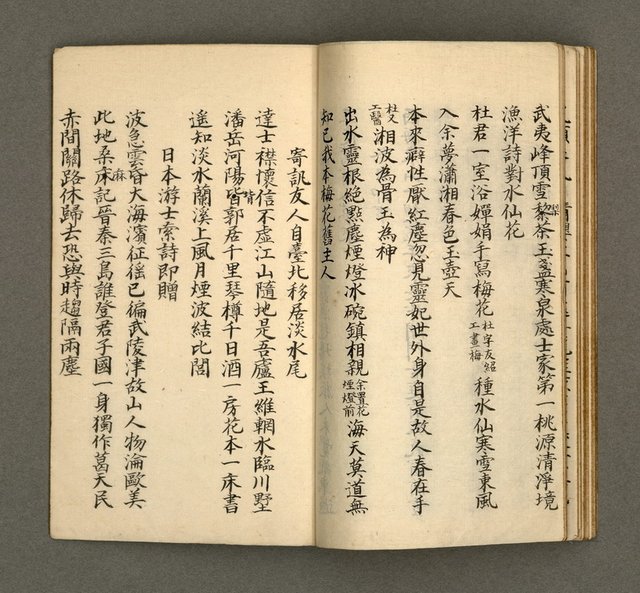 武夷峰頂雪黎茶玉盞寒泉處士家第一桃源清淨境
漁洋詩對水仙花
杜君一室浴嬋娟手寫梅花杜字友紹工畫梅種水仙寒雪東風
入余夢瀟湘春色玉壺天
本來癖性厭紅塵忽見靈妃世外身自是故人春在手
杜又工醫湘波為骨玉為神
出水靈根絕點塵煙燈冰碗鎮相親余置花煙燈前海天莫道無
知己我本梅花舊主人
寄訊友人自臺北移居淡水尾
達士襟懷信不虛江山隨地是吾廬王維輞水臨川墅
潘岳河陽背郭居千里琴樽千日酒一房花本一床書
遙知淡水蘭溪上風月煙波結比閭
日本游士索詩即贈
波急雲昏大海濱征徭已徧武陵津故山人物淪歐美
此地桑麻記晉秦三島誰登君子國一身獨作葛天民
赤間關路休歸去恐與時趨隔兩塵